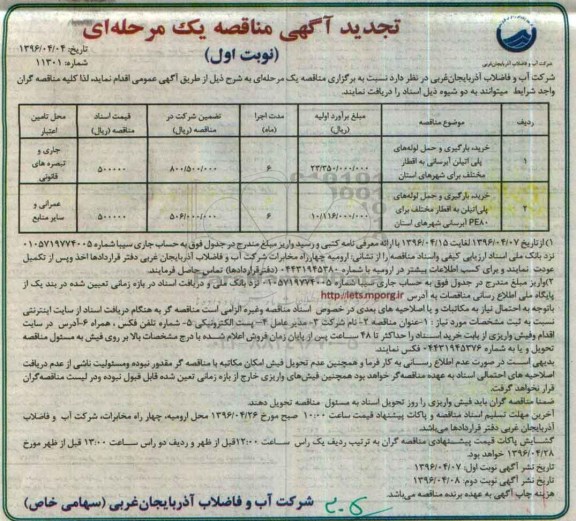 تجدید آگهی مناقصه یک مرحله‌ای
(نوبت اول)
تاریخ: ۱۳۹۶/۰۴/۰۴
شماره: ۱۱۳۰۱
شرکت آب و فاضلاب آذربایجان‌غربی
شرکت آب و فاضلاب آذربایجان‌غربی در نظر دارد نسبت به برگزاری مناقصه یک مرحله‌ای به شرح ذیل از طریق آگهی عمومی اقدام نماید، لذا کلیه مناقصه گران
واجد شرایط میتوانند به دو شیوه ذیل اسناد را دریافت نمایند.
ردیف موضوع مناقصه مبلغ برآورد اولیه (ریال) مدت اجرا (ماه) تضمین شرکت در مناقصه (ریال) قیمت اسناد مناقصه (ریال) محل تامین اعتبار
۱ خرید، بارگیری و حمل لوله‌های پلی اتیلن آبرسانی به اقطار مختلف برای شهرهای استان ۲۳/۳۵۰/۰۰۰/۰۰۰ ۶ ۸۰۰/۵۰۰/۰۰۰ ۵۰۰۰۰۰ جاری و تبصره های قانونی
۲ خرید، بارگیری و حمل لوله‌های پلی‌اتیلن به اقطار مختلف برای PE۸۰ آبرسانی شهرهای استان ۱۰/۱۱۶/۰۰۰/۰۰۰ ۶ ۵۰۶/۰۰۰/۰۰۰ ۵۰۰۰۰۰ عمرانی و سایر منابع
۱) از تاریخ ۱۳۹۶/۰۴/۰۷ لغایت ۱۳۹۶/۰۴/۱۵ با ارائه معرفی نامه کتبی و رسید واریز مبلغ مندرج در جدول فوق به حساب جاری سیبا شماره ۰۱۰۵۷۱۹۷۷۴۰۰۵
نزد بانک ملی اسناد ارزیابی کیفی واسناد مناقصه را از نشانی: ارومیه چهارراه مخابرات شرکت آب و فاضلاب آذربایجان غربی دفتر قراردادها اخذ وپس از تکمیل
عودت نمایند و برای کسب اطلاعات بیشتر در ارومیه با شماره ۰۴۴۳۱۹۴۵۳۸۰ (دفتر قراردادها) تماس حاصل فرمایند.
۲)واریز مبلغ مندرج در جدول فوق به حساب جاری سیبا شماره ۰۱۰۵۷۱۹۷۷۴۰۰۵ نزد بانک ملی و دریافت اسناد در بازه زمانی تعیین شده در بند یک از
پایگاه ملی اطلاع رسانی مناقصات به آدرس http://iets.mporg.ir
باتوجه به احتمال نیاز به مکاتبات و یا اصلاحیه های بعدی در خصوص اسناد مناقصه وغیره الزامی است مناقصه گر به هنگام دریافت اسناد از سایت اینترنتی
نسبت به ثبت مشخصات مورد نیاز : ۱-عنوان مناقصه ۲-نام شرکت ۳- مدیر عامل ۴-پست الکترونیکی ۵- شماره تلفن فکس ، همراه ۶-آدرس در سایت
اقدام وفیش واریزی از بابت خرید اسناد را حداکثر تا ۴۸ ساعت پس از پایان زمان فروش اعلام شده با درج مشخصات بالا بر روی فیش به مسئول مناقصه
تحویل و یا به شماره ۰۴۴۳۱۹۴۵۳۷۶ فکس نمایند.
بدیهی است در صورت عدم اطلاع رسانی به کار فرما و همچنین عدم تحویل فیش امکان مکاتبه با مناقصه گر مقدور نبوده ومسئولیت ناشی از عدم دریافت
اصلاحیه های احتمالی اسناد به عهده مناقصه‌گر خواهد بود همچنین فیش‌های واریزی خارج از بازه زمانی تعیین شده قابل قبول نبوده ودر لیست مناقصه‌گران
قرار نخواهد گرفت.
ضمنا مناقصه گران باید فیش واریزی را روز تحویل اسناد به مسئول مناقصه تحویل دهند.
آخرین مهلت تسلیم اسناد مناقصه و پاکات پیشنهاد قیمت ساعت ۱۰:۰۰ صبح مورخ ۱۳۹۶/۰۴/۲۶ محل ارومیه، چهار راه مخابرات، شرکت آب و فاضلاب
آذربایجان غربی دفتر قراردادها می‌باشد.
گشایش پاکات قیمت پیشنهادی مناقصه گران به ترتیب ردیف یک راس ساعت ۱۲:۰۰قبل از ظهر و ردیف دو راس ساعت ۱۳:۰۰ قبل از ظهر مورخ
۱۳۹۶/۰۴/۲۸ خواهد بود.
تاریخ نشر آگهی نوبت اول: ۱۳۹۶/۰۴/۰۷
تاریخ نشر آگهی نوبت دوم: ۱۳۹۶/۰۴/۰۸
هزینه چاپ آگهی به عهده برنده مناقصه می‌باشد.
شرکت آب و فاضلاب آذربایجان‌غربی (سهامی خاص)